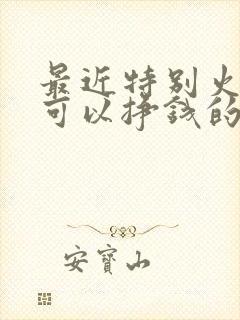 最近特别火
可以挣钱的
安宝山